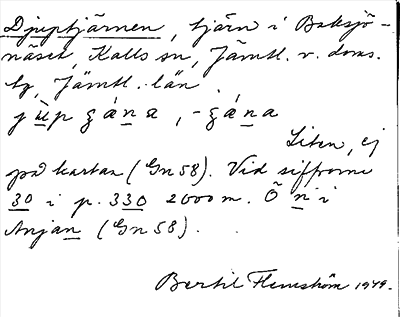 Djuptjärnen, tjärn i Baksjö-
näset, Kalls sn, Jämtl. v. doms.
tg, Jämtl. län.
jùp ʒána, -ʒána
Liten, ej
på kartan (Gn 58). Vid siffrorna
30 i p. 330 2000 m. Ö n i
Anjan (Gn 58).
Bertil Flemström 1949.